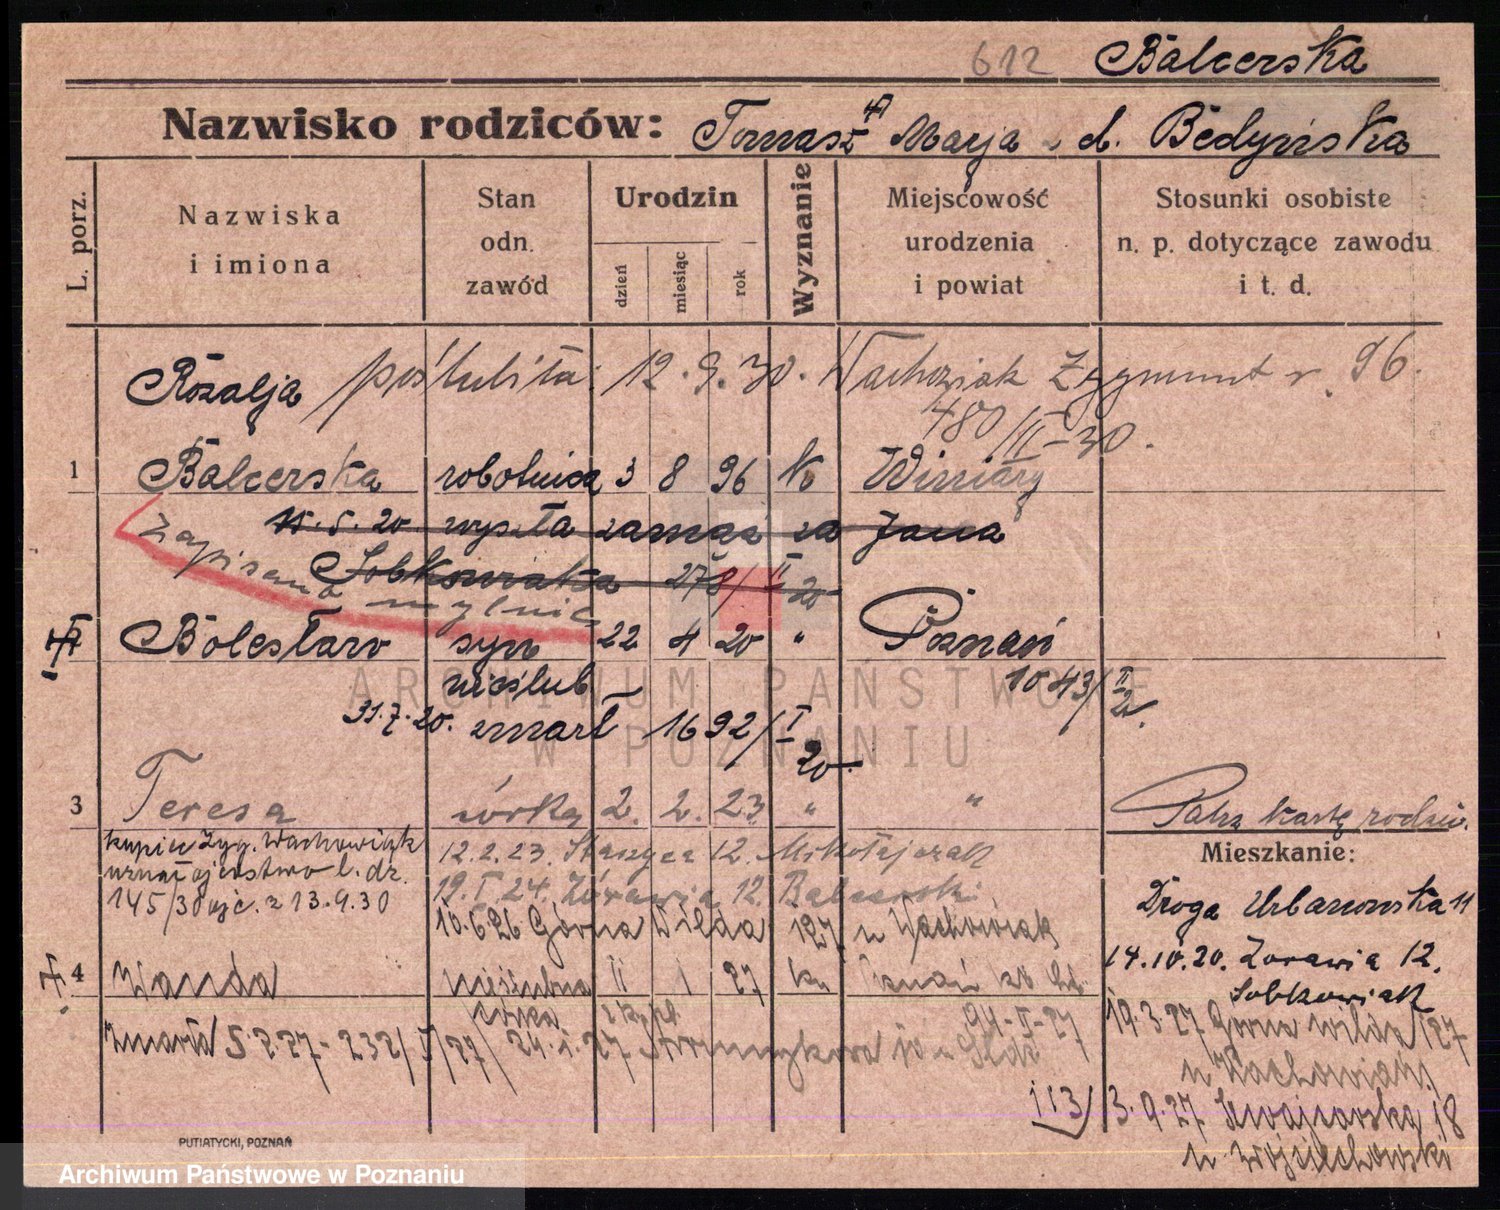 612 Balcerska
Nazwisko rodziców: Tomasz Marja d. Bedyńska
L. porz.
Nazwiska
i imiona
Stan
odn.
zawód
Urodzin
dzień
miesiąc
rok
Wyznanie
Miejscowość
urodzenia
i powiat
Stosunki osobiste
n. p. dotyczące zawodu
i t. d.
Rozalja poślubiła 12.9.30. Wachowiak Zygmunt r. 96.
480/II-30.
1 Balcerska robotnica 3 8 96 k Winiary
15.5.20 wyszła zamąż za Jana
Sobkowiaka 278/II 20
zapisano mylnie
Bolesław syn 22 4 20 " Poznań
nieślub 1043/II 20.
31.7.20. zmarł 1692/I
20
3 Teresa córka 2. 2. 23 " "
Patrz kartę rodzic.
kupiec Zyg. Wachowiak
uznał ojcostwo l. dz.
145/30 ojc. z 13.9.30
12.2.23. 12. Mikołajczak
19.I.24. Żórawia 12. Balcerski
10.6.26 Górna Wilda 127 u Wachowiak
Mieszkanie:
Droga Urbanowska 11
14.10.20. Żorawia 12.
Sobkowiak
4 Wanda nieślubna II 1 27 k Poznań
córka 94-I-27
Zmarła 5.2.27 - 232/I/27 24.1.27
19.3.27 Gorna Wilda 127
u Wachowiak
113/ 3.9.27 Szwajcarska 18
u Wojciechowski
PUTIATYCKI, POZNAŃ
ARCHIWUM PAŃSTWOWE
W POZNANIU
Archiwum Państwowe w Poznaniu